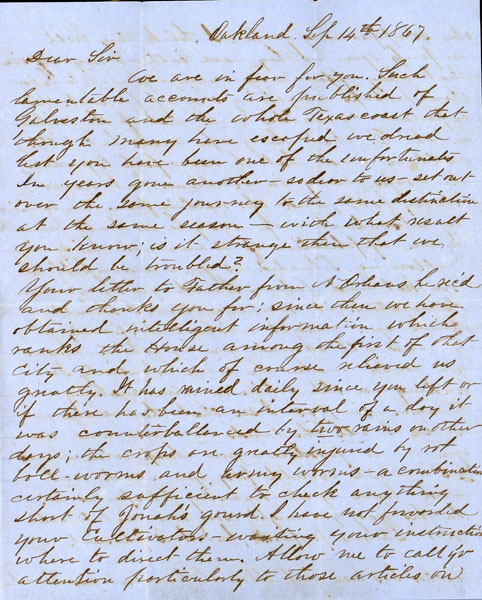 Oakland Sep 14th 1867.
Dear Sir
We are in fear for you. Such
lamentable accounts are published of
Galveston and the whole Texas coast that
though many have escaped we dread
lest you have been one of the unfortunates
In years gone another - so dear to us - set out
over the same journey to the same destination
at the same season - with what result
you know; is it strange then that we
should be troubled?
Your letter to Father from N Orleans he rec'd
and thanks you for; since then we have
obtained intelligent information which
ranks the House among the first of that
City and which of course relieved us
greatly. It has rained daily since you left or
if there has been an interval of a day it
was counterballanced by two rains on other
days; the crops are greatly injured by rot
boll-worms and army worms - a combination
certainly sufficient to check anything
short of Jonah's gourd. I have not forwarded
your Cultivators - waiting your instruction
where to direct them. Allow me to call yo
attention particularly to those articles on